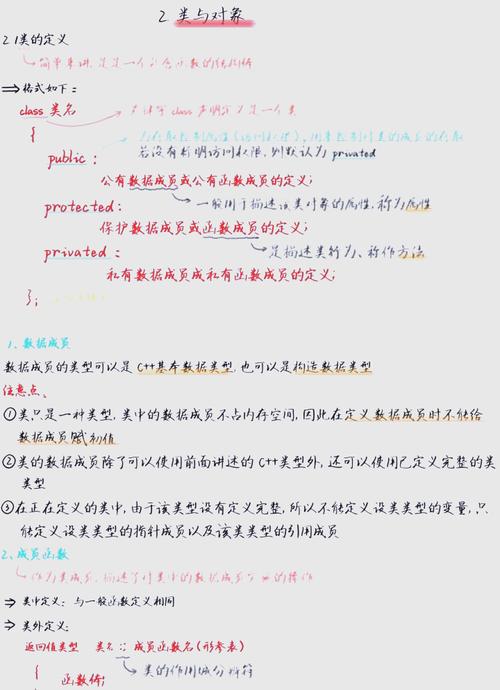 2 类与对象
2.1类的定义
简单来讲,是一个包含函数的结构体
⇒格式如下:
class 类名
关键字class声明定义是一个类
{
若没有标明访问权限,则默认为privated
public:
公有数据成员或公有函数成员的定义;
protected: 一般用于描述该类对象的属性,称为属性
保护数据成员或函数成员的定义;
privated: 是描述类行为、称作方法
私有数据成员或私有函数成员的定义;
};
1、数据成员
数据成员的类型可以是C++基本数据类型,也可以是构造数据类型
注意点、
①类只是一种类型,类中的数据成员不占内存空间,因此,在定义数据成员时不能给
数据成员赋初值
②类的数据成员除了可以使用前面讲述的C++类型外,还可以使用已定义完整的类
类型
③在正在定义的类中,由于该类型没有定义完整,所以不能定义该类类型的变量,只
能定义该类类型的指针成员以及该类类型的引用成员
2、成员函数
作为类成员,描述了对类中的数据成员的操作
⇒ 类中定义:与一般函数定义相同
⇒ 类外定义:
返回值类型 类名::成员函数名(形参表)
{ 类的作用域分辨符
函数体;